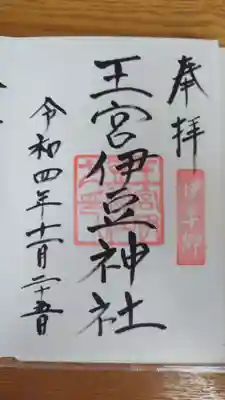 奉拝
王宮伊豆神社
令和四年十一月二十五日